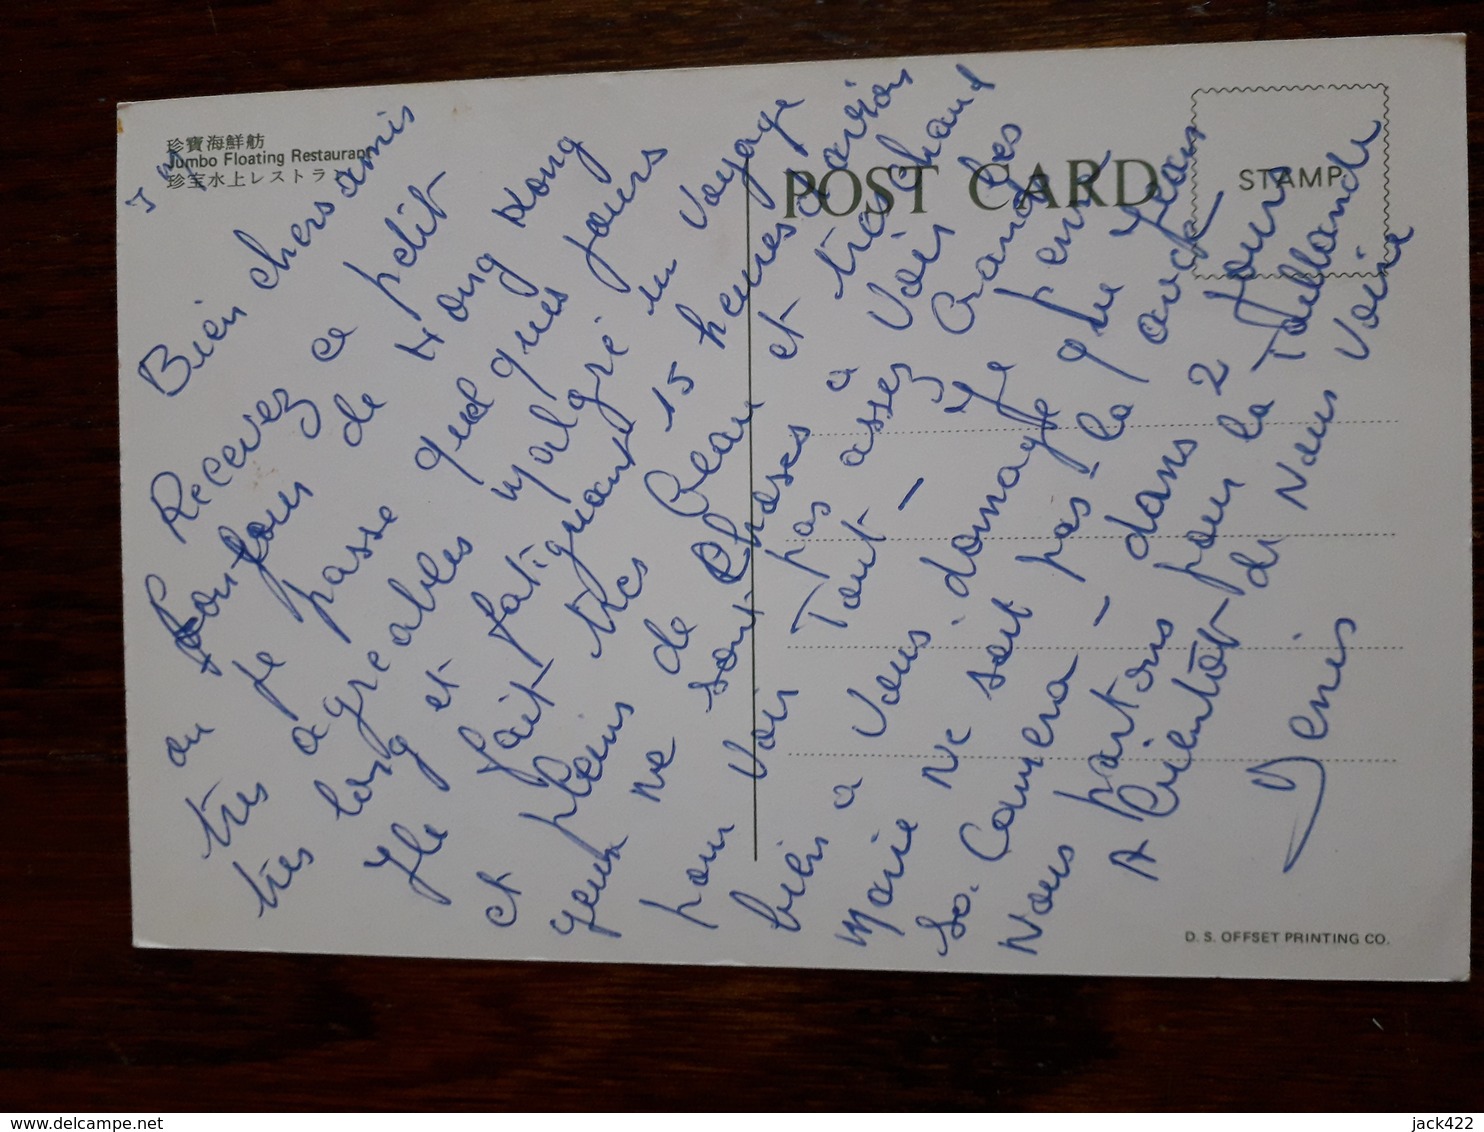 珍寶海鮮舫
Jumbo Floating Restaurant
珍宝水上レストラン
POST CARD
STAMP
Bien chers amis
Recevez ce petit
Bonjour de Hong Kong
ou je passe quel ques jours
très agréables malgré un voyage
très long et fatiguant 15 heures d'avion
Il fait très Beau et très chaud
et pleins de choses à voir les
yeux ne sont pas assez Grands
pour voir Tout - Je pense
bien a vous. domage que Jean
Marie ne soit pas là avec
sa Camera - dans 2 jours
Nous partons pour la Taillande
A Bientôt de Nous Voire
Denis
D. S. OFFSET PRINTING CO.
jack422